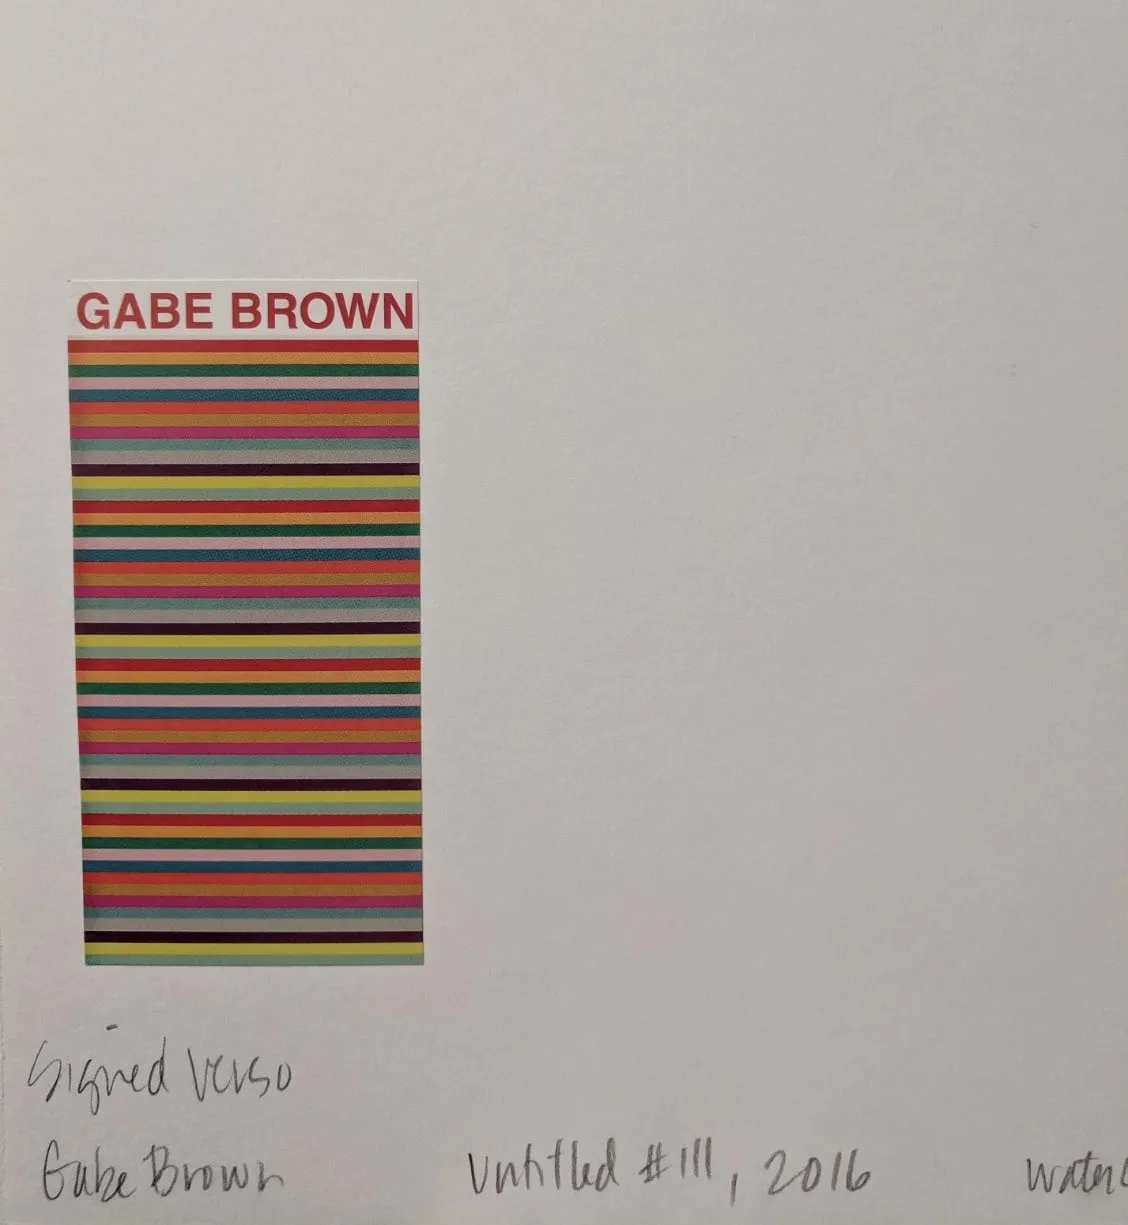 GABE BROWN
Signed Verso
Gabe Brown Untitled #111, 2016